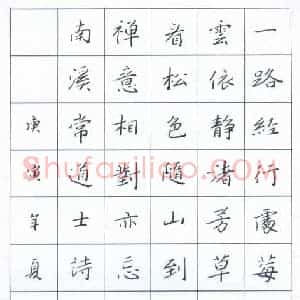 一路經行處莓
雲依靜渚芳草
看松色隨山到
禪意相對亦忘
南溪常道士詩
庚寅年夏
Shufaziliao.COM